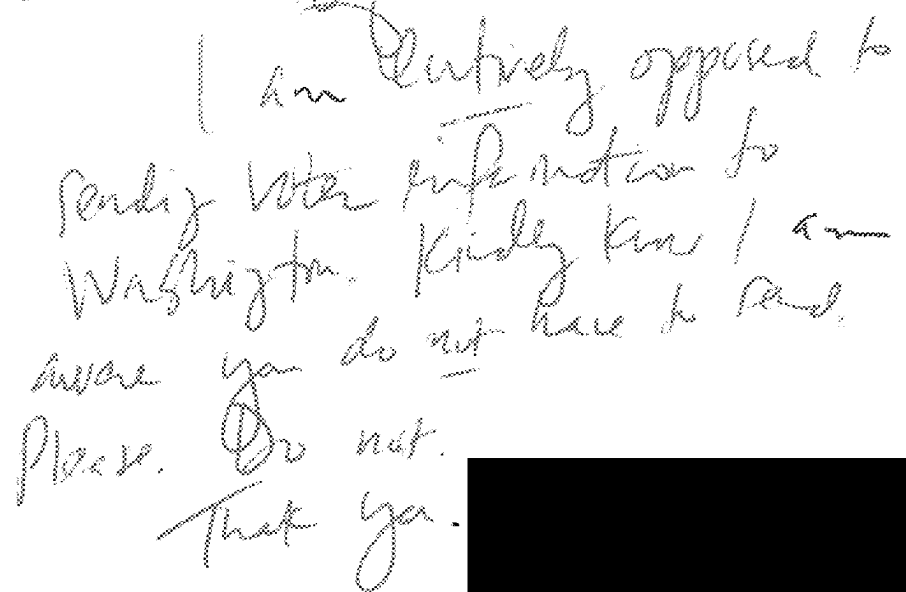 I am entirely opposed to
sending voter information to
Washington. Kindly know I am
aware you do not have to send.
Please. Do not.
Thank you.